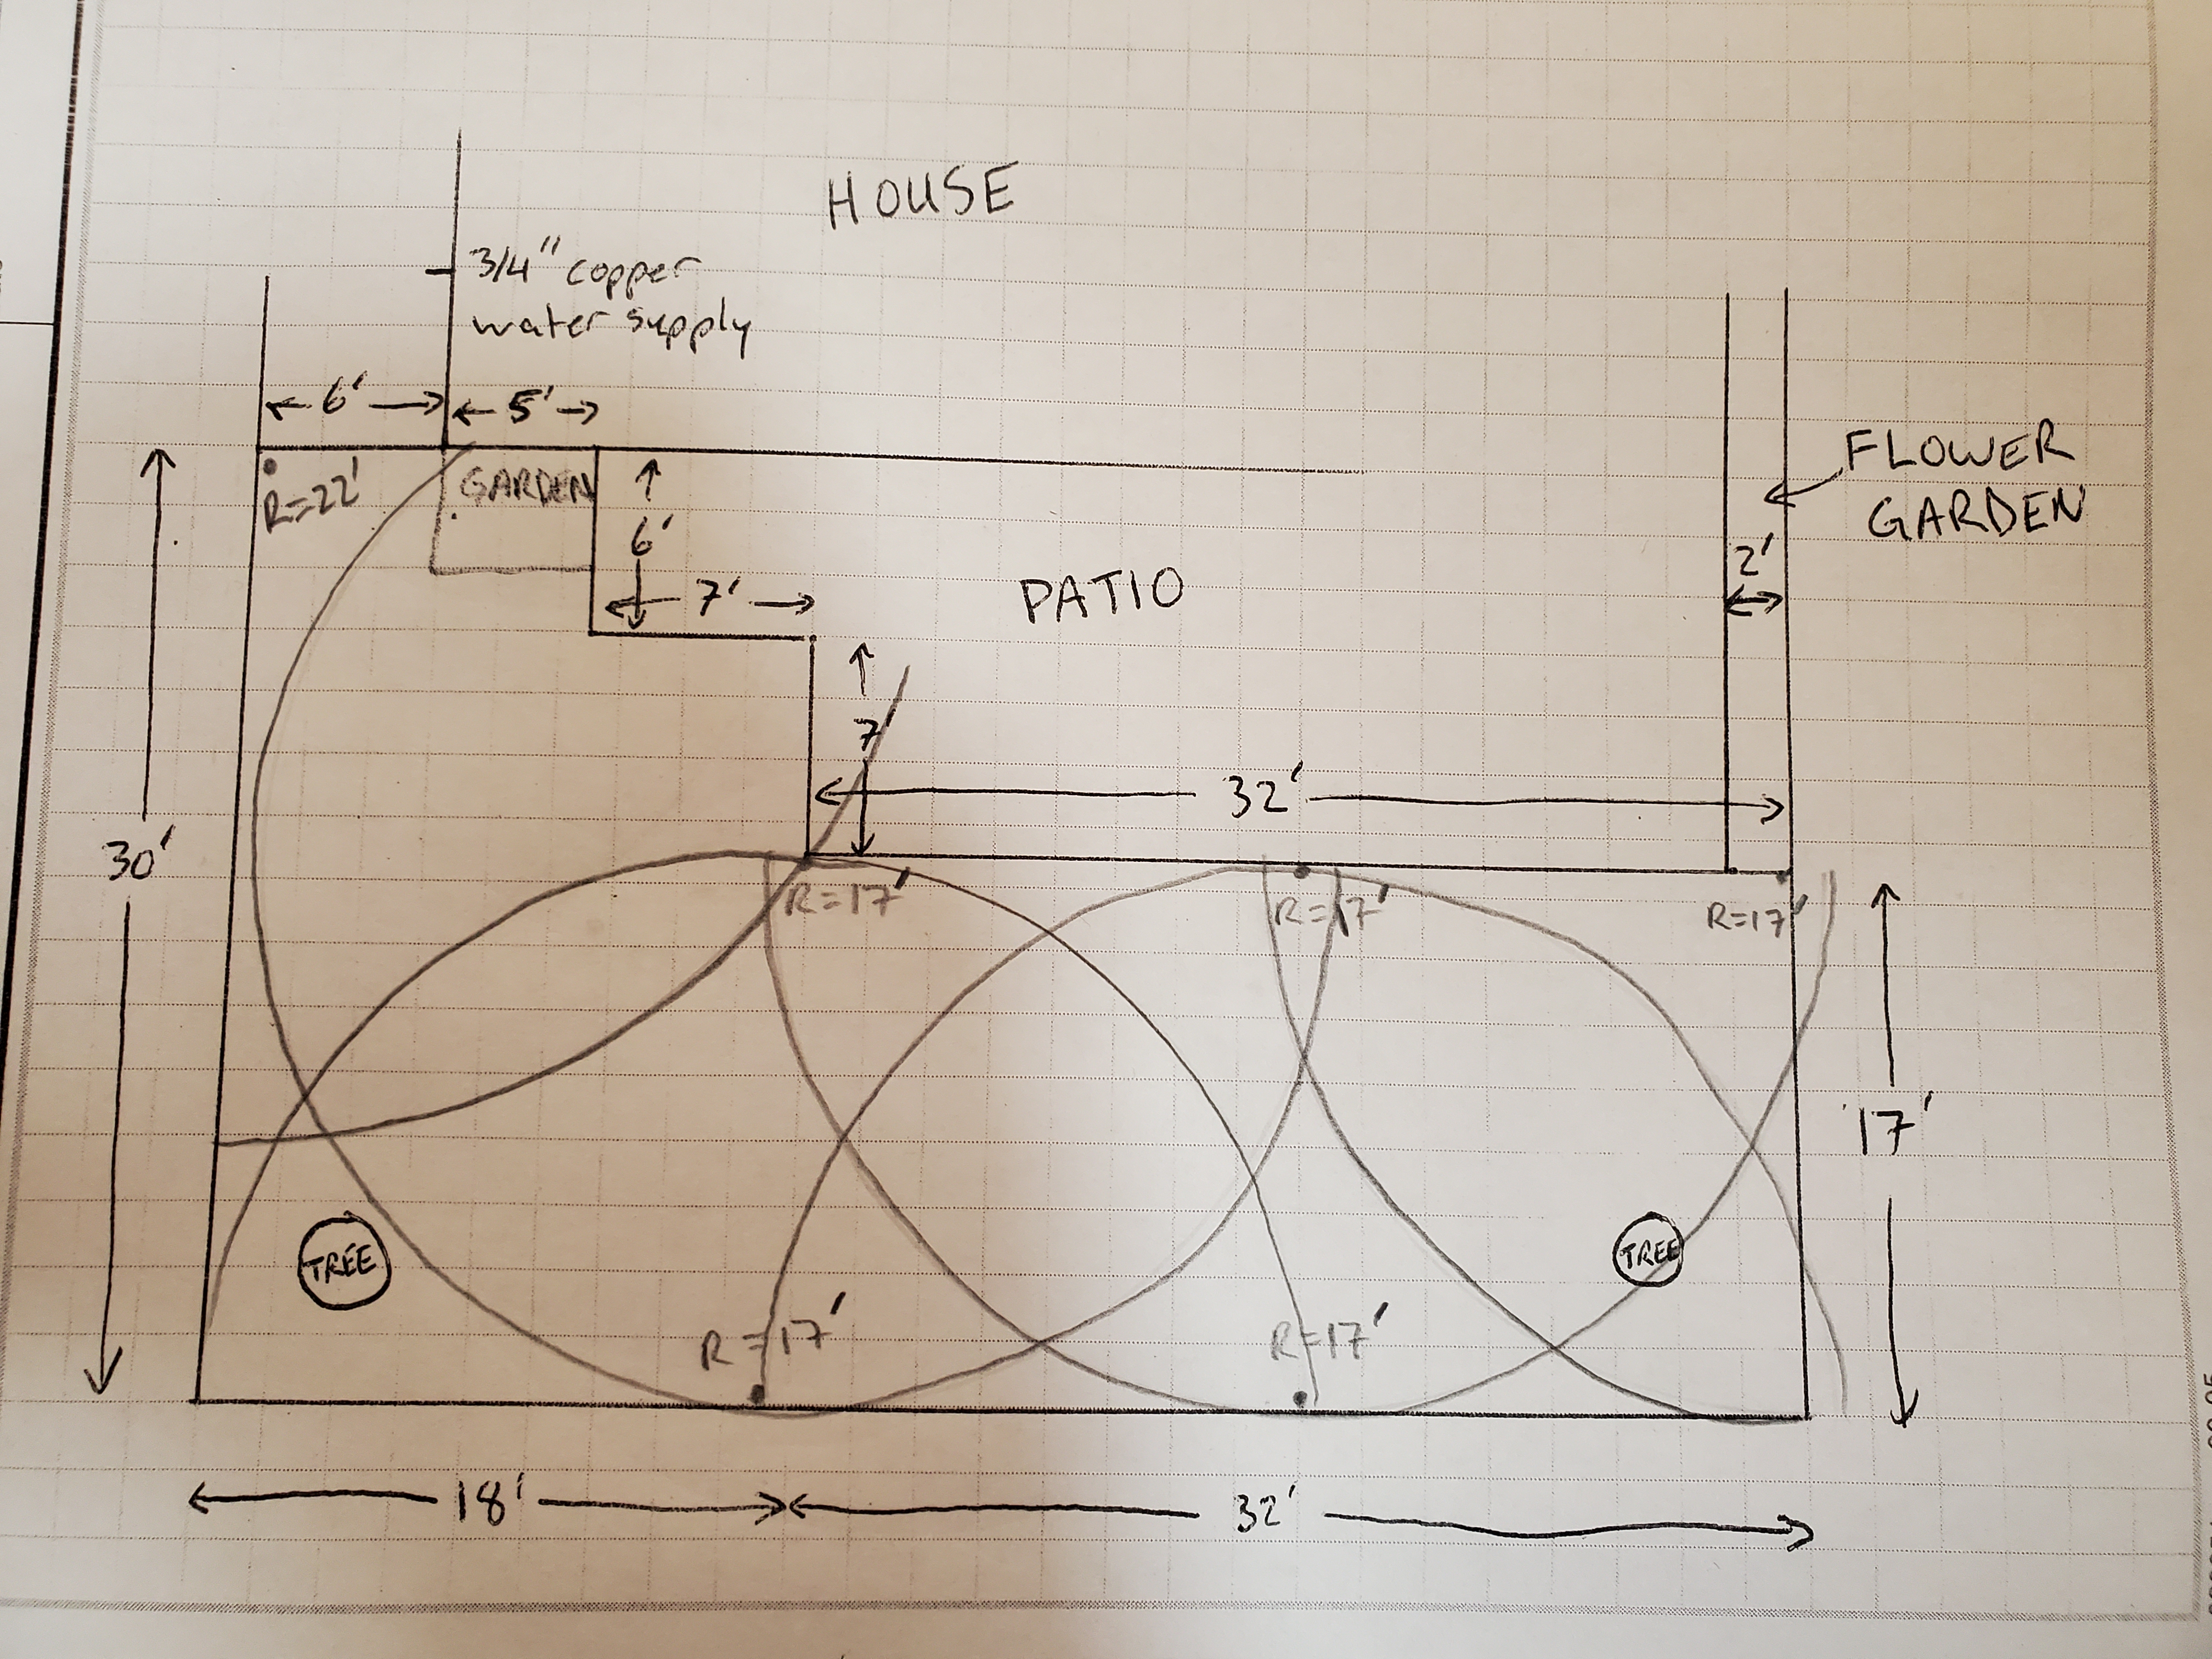 HOUSE
3/4" copper
water supply
6'
5'
R=22'
GARDEN
6'
7'
PATIO
FLOWER
GARDEN
2'
7'
32'
30'
R=17'
R=17'
R=17'
17'
TREE
TREE
R=17'
R=17'
18'
32'